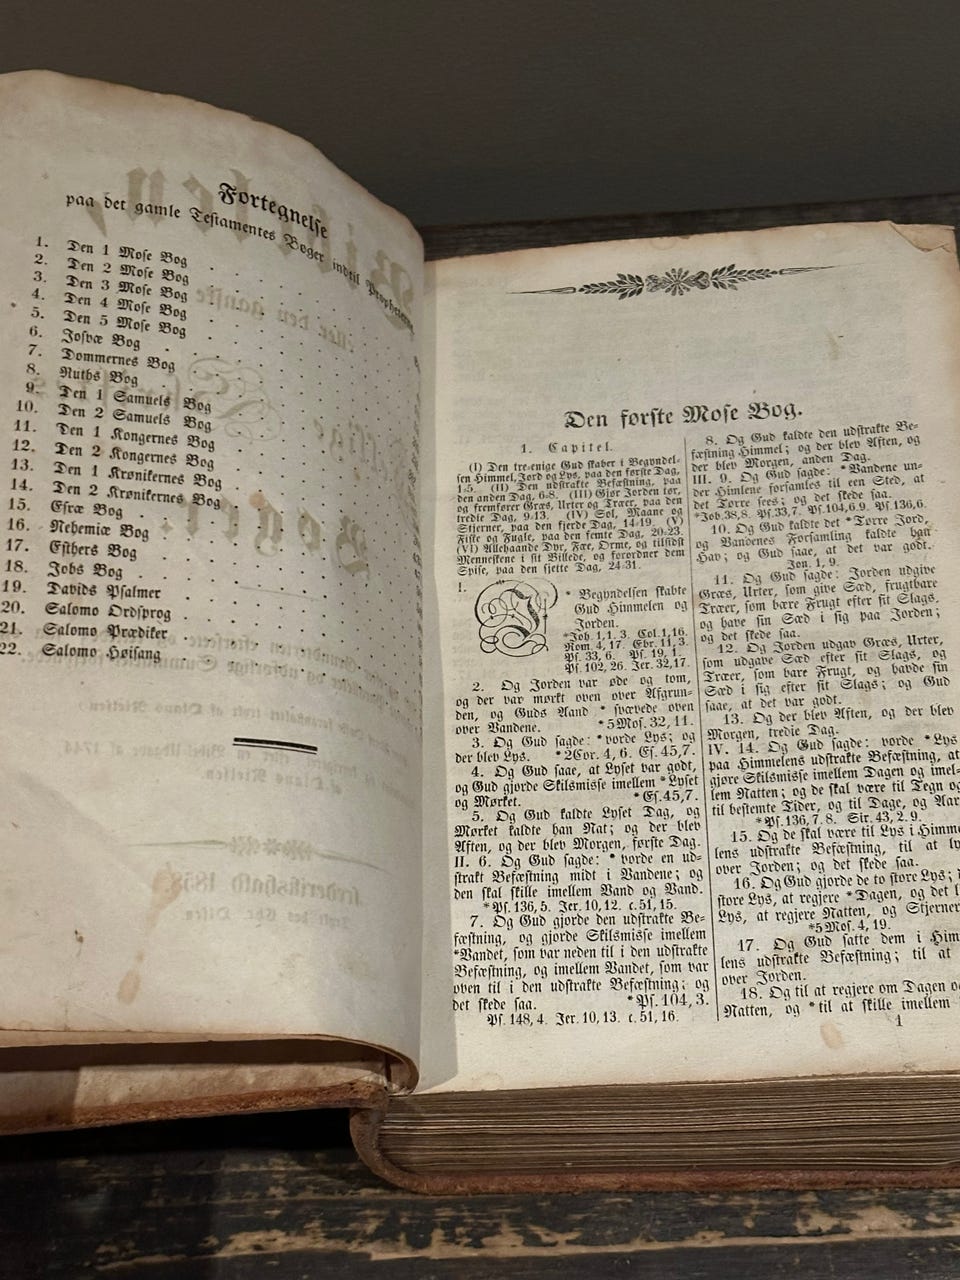 Fortegnelse
paa det gamle Testamentes Bøger indtil Propheterne
1. Den 1 Mose Bog
2. Den 2 Mose Bog
3. Den 3 Mose Bog
4. Den 4 Mose Bog
5. Den 5 Mose Bog
6. Josvæ Bog
7. Dommernes Bog
8. Ruths Bog
9. Den 1 Samuels Bog
10. Den 2 Samuels Bog
11. Den 1 Kongernes Bog
12. Den 2 Kongernes Bog
13. Den 1 Krønikernes Bog
14. Den 2 Krønikernes Bog
15. Esræ Bog
16. Nehemiæ Bog
17. Esthers Bog
18. Jobs Bog
19. Davids Psalmer
20. Salomo Ordsprog
21. Salomo Prædiker
22. Salomo Høisang
Den første Mose Bog.
1. Capitel.
(I) Den tre-enige Gud skaber i Begyndel-
sen Himmel, Jord og Lys, paa den første Dag,
1-5. (II) Den udstrakte Befæstning, paa
den anden Dag, 6-8. (III) Gjør Jorden tør,
og fremfører Græs, Urter og Træer, paa den
tredie Dag, 9-13. (IV) Sol, Maane og
Stjerner, paa den fjerde Dag, 14-19. (V)
Fiske og Fugle, paa den femte Dag, 20-23.
(VI) Allehaande Dyr, Fæe, Orme, og tilsidst
Menneskene i sit Billede, og forordner dem
Spise, paa den sjette Dag, 24-31.
1. I * Begyndelsen skabte
Gud Himmelen og
Jorden.
*Job. 1,1.3. Col. 1,16.
Rom. 4,17. Ebr. 11,3.
Ps. 33,6. Ps. 19,1.
Ps. 102,26. Jer. 32,17.
2. Og Jorden var øde og tom,
og der var mørkt oven over Afgrun-
den, og Guds Aand * svævede oven
over Vandene. *5 Mos. 32,11.
3. Og Gud sagde: *vorde Lys; og
der blev Lys. *2Cor. 4,6. Es. 45,7.
4. Og Gud saae, at Lyset var godt,
og Gud gjorde Skilsmisse imellem *Lyset
og Mørket. *Es. 45,7.
5. Og Gud kaldte Lyset Dag, og
Mørket kaldte han Nat; og der blev
Aften, og der blev Morgen, første Dag.
II. 6. Og Gud sagde: * vorde en ud-
strakt Befæstning midt i Vandene; og
den skal skille imellem Vand og Vand.
*Ps. 136,5. Jer. 10,12. c. 51,15.
7. Og Gud gjorde den udstrakte Be-
fæstning, og gjorde Skilsmisse imellem
*Vandet, som var neden til i den udstrakte
Befæstning, og imellem Vandet, som var
oven til i den udstrakte Befæstning; og
det skede saa. *Ps. 104,3.
Ps. 148,4. Jer. 10,13. c. 51,16.
8. Og Gud kaldte den udstrakte Be-
fæstning Himmel; og der blev Aften, og
der blev Morgen, anden Dag.
III. 9. Og Gud sagde: *Vandene un-
der Himlene forsamles til een Sted, at
det Tørre sees; og det skede saa.
*Job. 38,8. Ps. 33,7. Ps. 104,6.9. Ps. 136,6.
10. Og Gud kaldte det *Tørre Jord,
og Vandenes Forsamling kaldte han
Hav; og Gud saae, at det var godt.
Jon. 1,9.
11. Og Gud sagde: Jorden udgive
Græs, Urter, som give Sæd, frugtbare
Træer, som bære Frugt efter sit Slags,
og have sin Sæd i sig paa Jorden;
og det skede saa.
12. Og Jorden udgav Græs, Urter,
som udgave Sæd efter sit Slags, og
Træer, som bare Frugt, og havde sin
Sæd i sig efter sit Slags; og Gud
saae, at det var godt.
13. Og der blev Aften, og der blev
Morgen, tredie Dag.
IV. 14. Og Gud sagde: vorde *Lys
paa Himmelens udstrakte Befæstning, at
gjøre Skilsmisse imellem Dagen og imel-
lem Natten; og de skal være til Tegn og
til bestemte Tider, og til Dage, og Aar
*Ps. 136,7.8. Sir. 43,2.9.
15. Og de skal være til Lys i Himme-
lens udstrakte Befæstning, til at
over Jorden; og det skede saa.
16. Og Gud gjorde de to store Lys;
store Lys, at regjere *Dagen, og det
Lys, at regjere Natten, og Stjerner
*5 Mos. 4,19.
17. Og Gud satte dem i Him
lens udstrakte Befæstning; til at
over Jorden.
18. Og til at regjere om Dagen
Natten, og *til at skille imellem
1